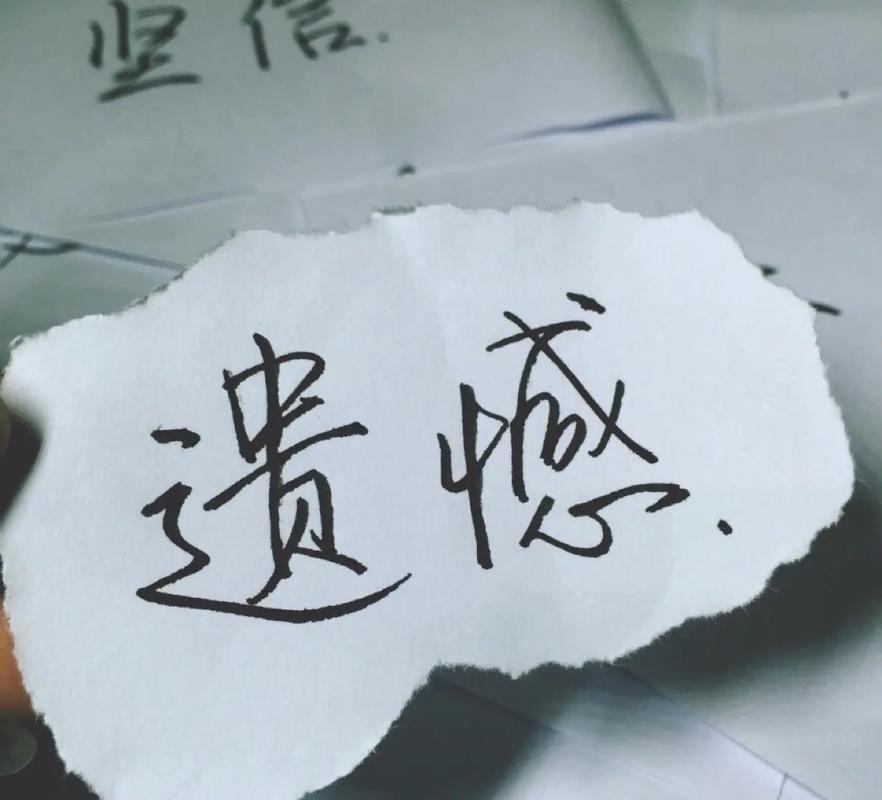 坚信.
遗憾.